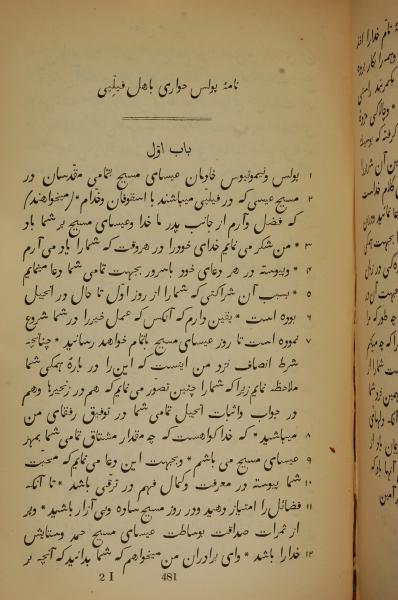 نامهٔ پولس حواری باهل فیلپّی
باب اوّل
۱ پولس وتیموثیوس خادمان عیسای مسیح بتمامی مقدّسان در
۲ مسیح عیسی که در فیلپّی میباشند با اسقوفان وخدّام * (میخواهند)
که فضل وآرام از جانب پدر ما خدا وعیسای مسیح بر شما باد
۳ * من شکر می نمایم خدای خودرا در هر وقت که شمارا یاد می آرم
۴ * وپیوسته در هر دعای خود باسرور بجهت تمامی شما دعا مینمایم
۵ * بسبب آن شراکتی که شمارا از روز اوّل تا حال در انجیل
۶ بوده است * یقین دارم که آنکس که عمل خیررا در شما شروع
۷ نموده است تا روز عیسای مسیح باتمام خواهد رسانید * چنانچه
شرط انصاف نزد من اینست که این را در بارهٔ همکی شما
ملاحظه نمایم زیرا که شمارا چنین تصوّر می نمایم که هم در زنجیرها وهم
در جواب واثبات انجیل تمامی شما در توفیق رفقای من
۸ میباشید * که خدا کواهست که چه مقدار مشتاق تمامی شما بمهر
۹ عیسای مسیح می باشم * وبجهت این دعا می نمایم که محبّت
۱۰ شما پیوسته در معرفت وکمال فهم در ترقی باشد * تا آنکه
۱۱ فضائل را امتیاز دهید ودر روز مسیح ساده وبی آزار باشید * وپر
از ثمرات صداقت بوساطت عیسای مسیح حمد وستایش
۱۲ خدارا باشد * وای برادران من میخواهم که شما بدانید که آنچه بر
2 I 481